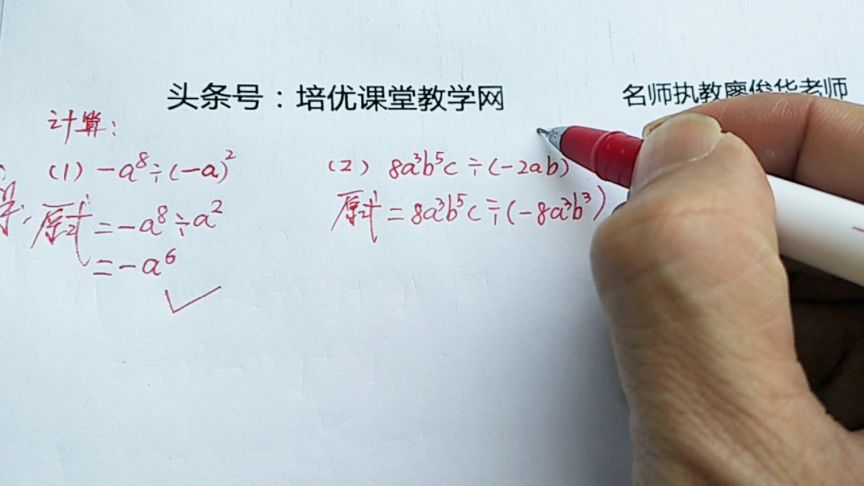 头条号：培优课堂教学网
名师执教廖俊华老师
计算：
(1) -a⁸÷(-a)²
原式=-a⁸÷a²
=-a⁶
(2) 8a³b⁵c÷(-2ab)
原式=8a³b⁵c÷(-8a³b³)